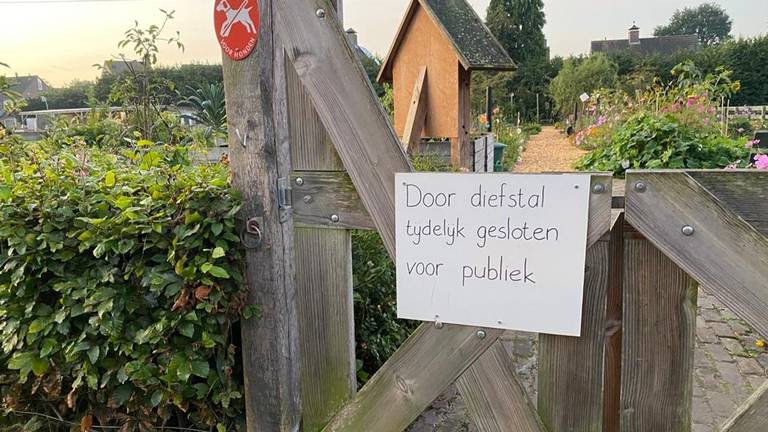 VOOR HONDEN
Door diefstal
tydelyk gesloten
voor publiek